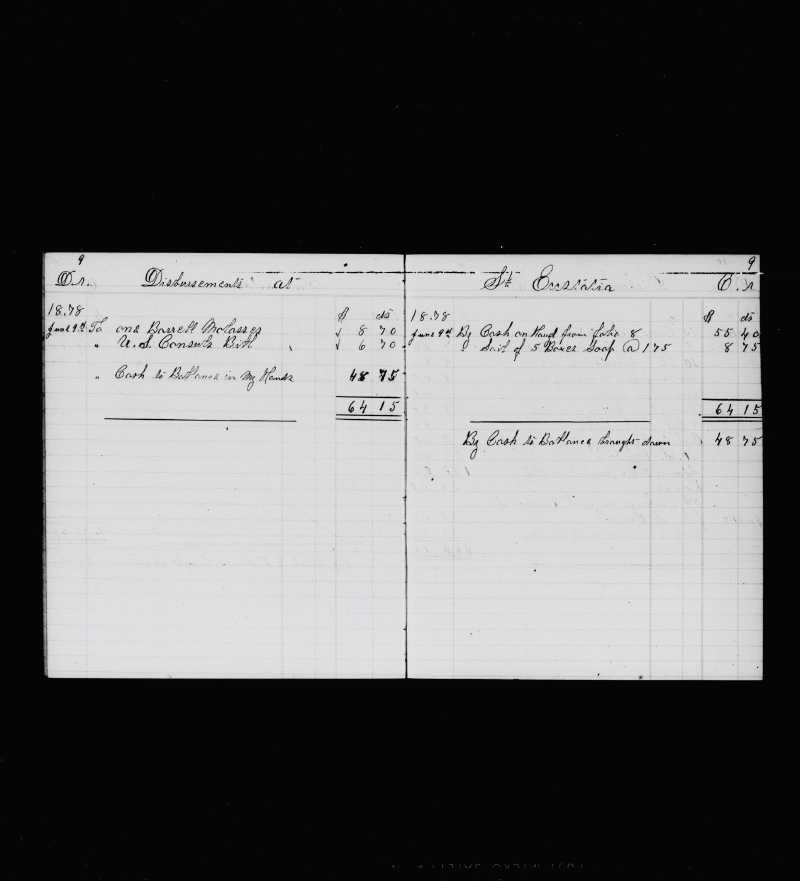 9
Dr. Disbursements at
18.78
$ cts
June 9th To one Barrell Molasses 8 70
" U.S Consuls Bill 6 70
" Cash to Ballance in My Hands 48 75
64 15
9
St Eustatia C.r
18.78
$ cts
June 9th By Cash on Hand from folio 8 55 40
Sail of 5 Boxes Soap @ 175 8 75
64 15
By Cash to Ballance braught down 48 75